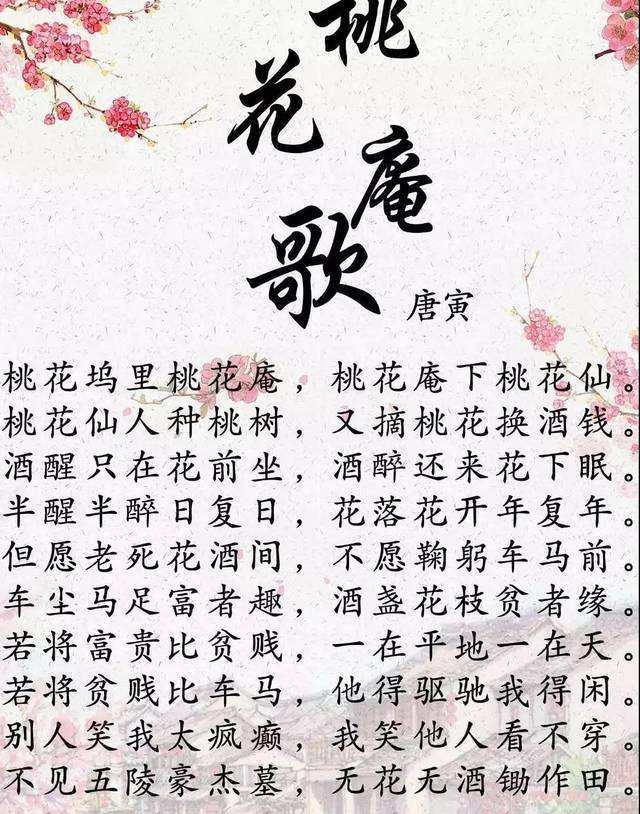 桃花庵歌
唐寅
桃花坞里桃花庵，桃花庵下桃花仙。
桃花仙人种桃树，又摘桃花换酒钱。
酒醒只在花前坐，酒醉还来花下眠。
半醒半醉日复日，花落花开年复年。
但愿老死花酒间，不愿鞠躬车马前。
车尘马足富者趣，酒盏花枝贫者缘。
若将富贵比贫贱，一在平地一在天。
若将贫贱比车马，他得驱驰我得闲。
别人笑我太疯癫，我笑他人看不穿。
不见五陵豪杰墓，无花无酒锄作田。